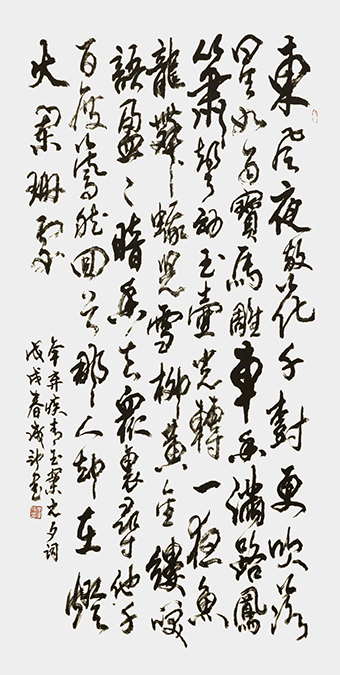 東風夜放花千樹更吹落
星如雨寶馬雕車香滿路鳳
簫聲動玉壺光轉一夜魚
龍舞蛾兒雪柳黃金縷笑
語盈〻暗香去眾裏尋他千
百度驀然回首那人却在燈
火闌珊處
辛棄疾青玉案元夕詞
戊戌春書